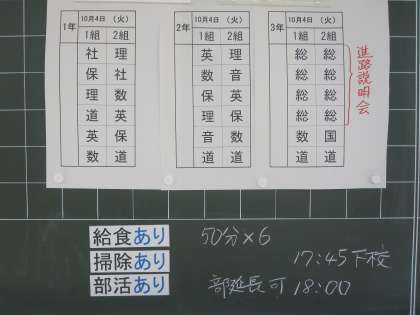 1年 10月4日 (火)
1組 2組
社 理
保 社
理 数
道 英
英 保
数 道
2年 10月4日 (火)
1組 2組
英 理
数 音
保 英
理 保
音 数
道 道
3年 10月4日 (火)
1組 2組
総 総
総 総
総 総
総 総
数 国
道 道
進路説明会
給食あり 50分×6
掃除あり 17:45下校
部活あり 部延長可 18:00